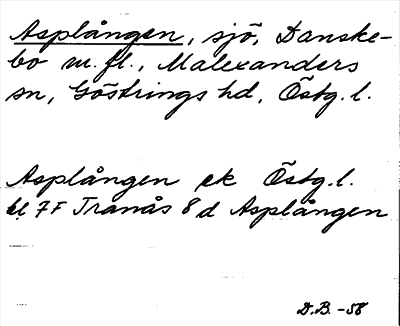 Asplången, sjö, Danske-
bo m.fl., Malexanders
sn, Göstrings hd, Östg.l.
Asplången ek Östg.l.
bl 7F Tranås 8d Asplången
D.B. -58